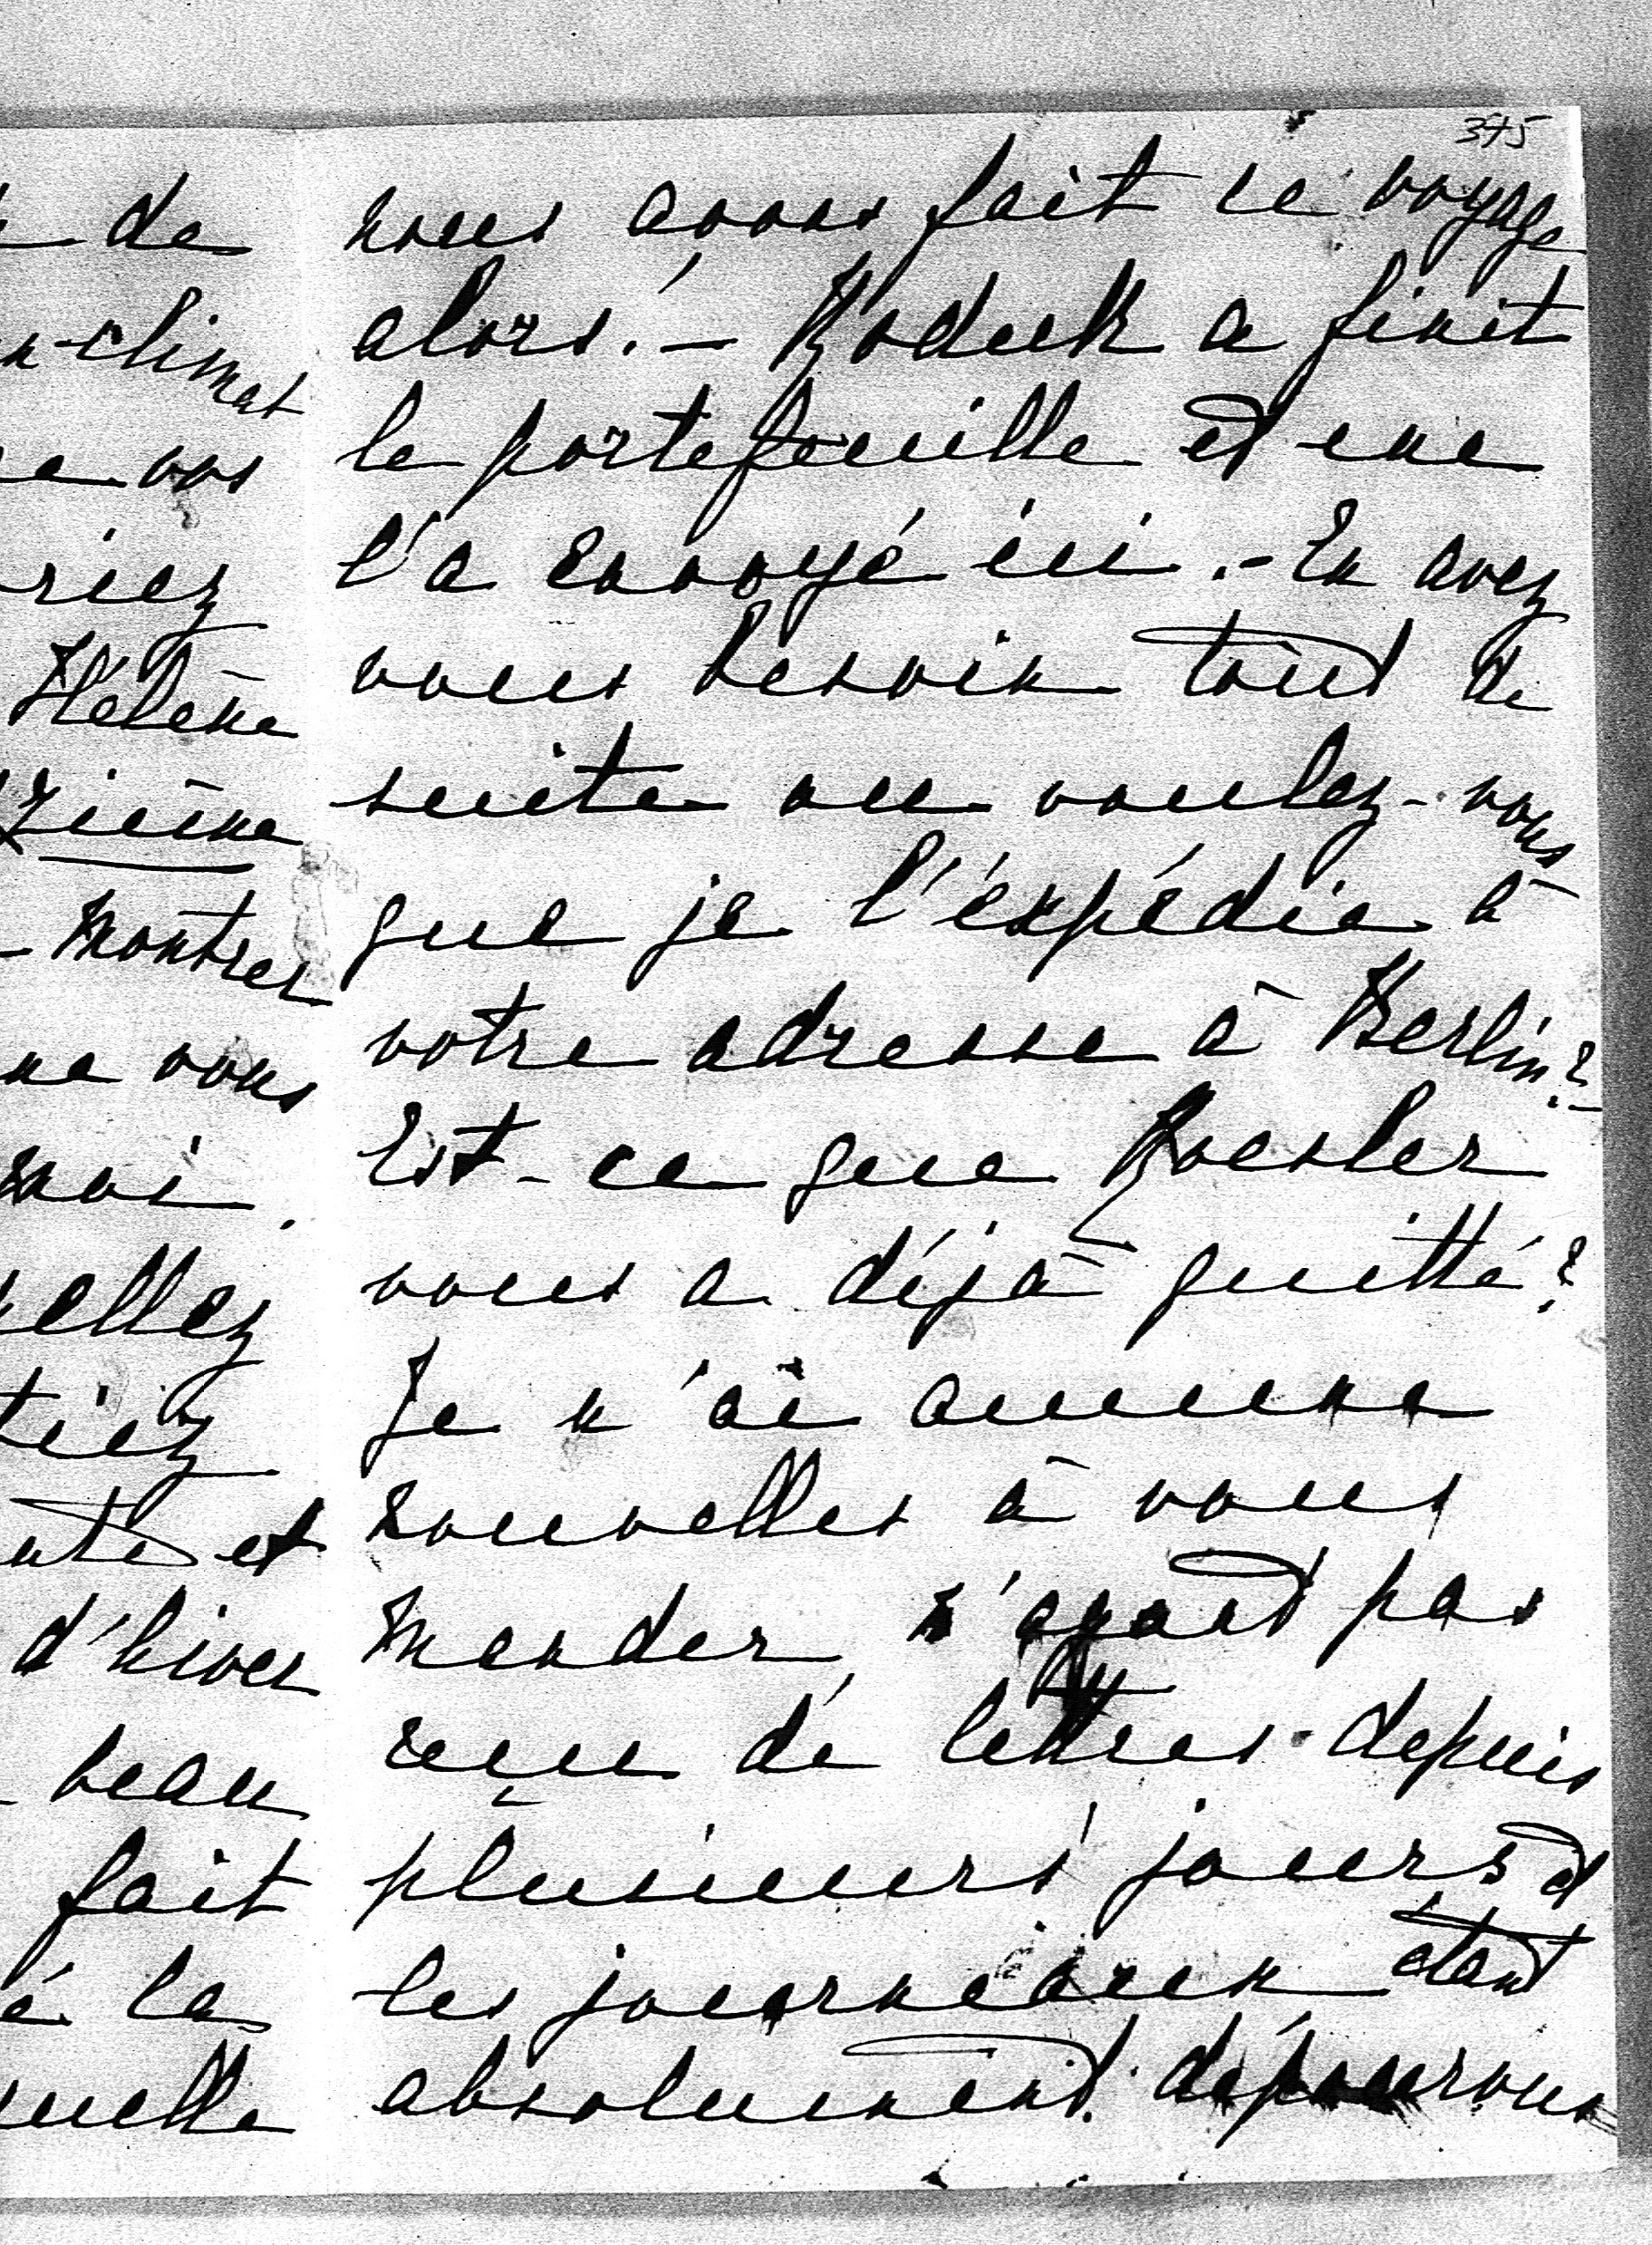 375
de
climat
vos
riez
Hélène
zième
montrer
ne vous
moi,
ellez
tiez
et
d'hiver
beau
fait
é la
uelle
nous avons fait ce voyage
alors. — Rodeck a finit
le portefeuille et me
l'a envoyé ici. — En avez
vous besoin tout de
suite ou voulez-vous
que je l'expédie à
votre adresse à Berlin? —
Est-ce que Roesler
vous a déjà quitté?
Je n'ai aucune
nouvelles à vous
mander, n'ayant pas
reçu de lettres depuis
plusieurs jours et
les journeaux étant
absolument dépourvus